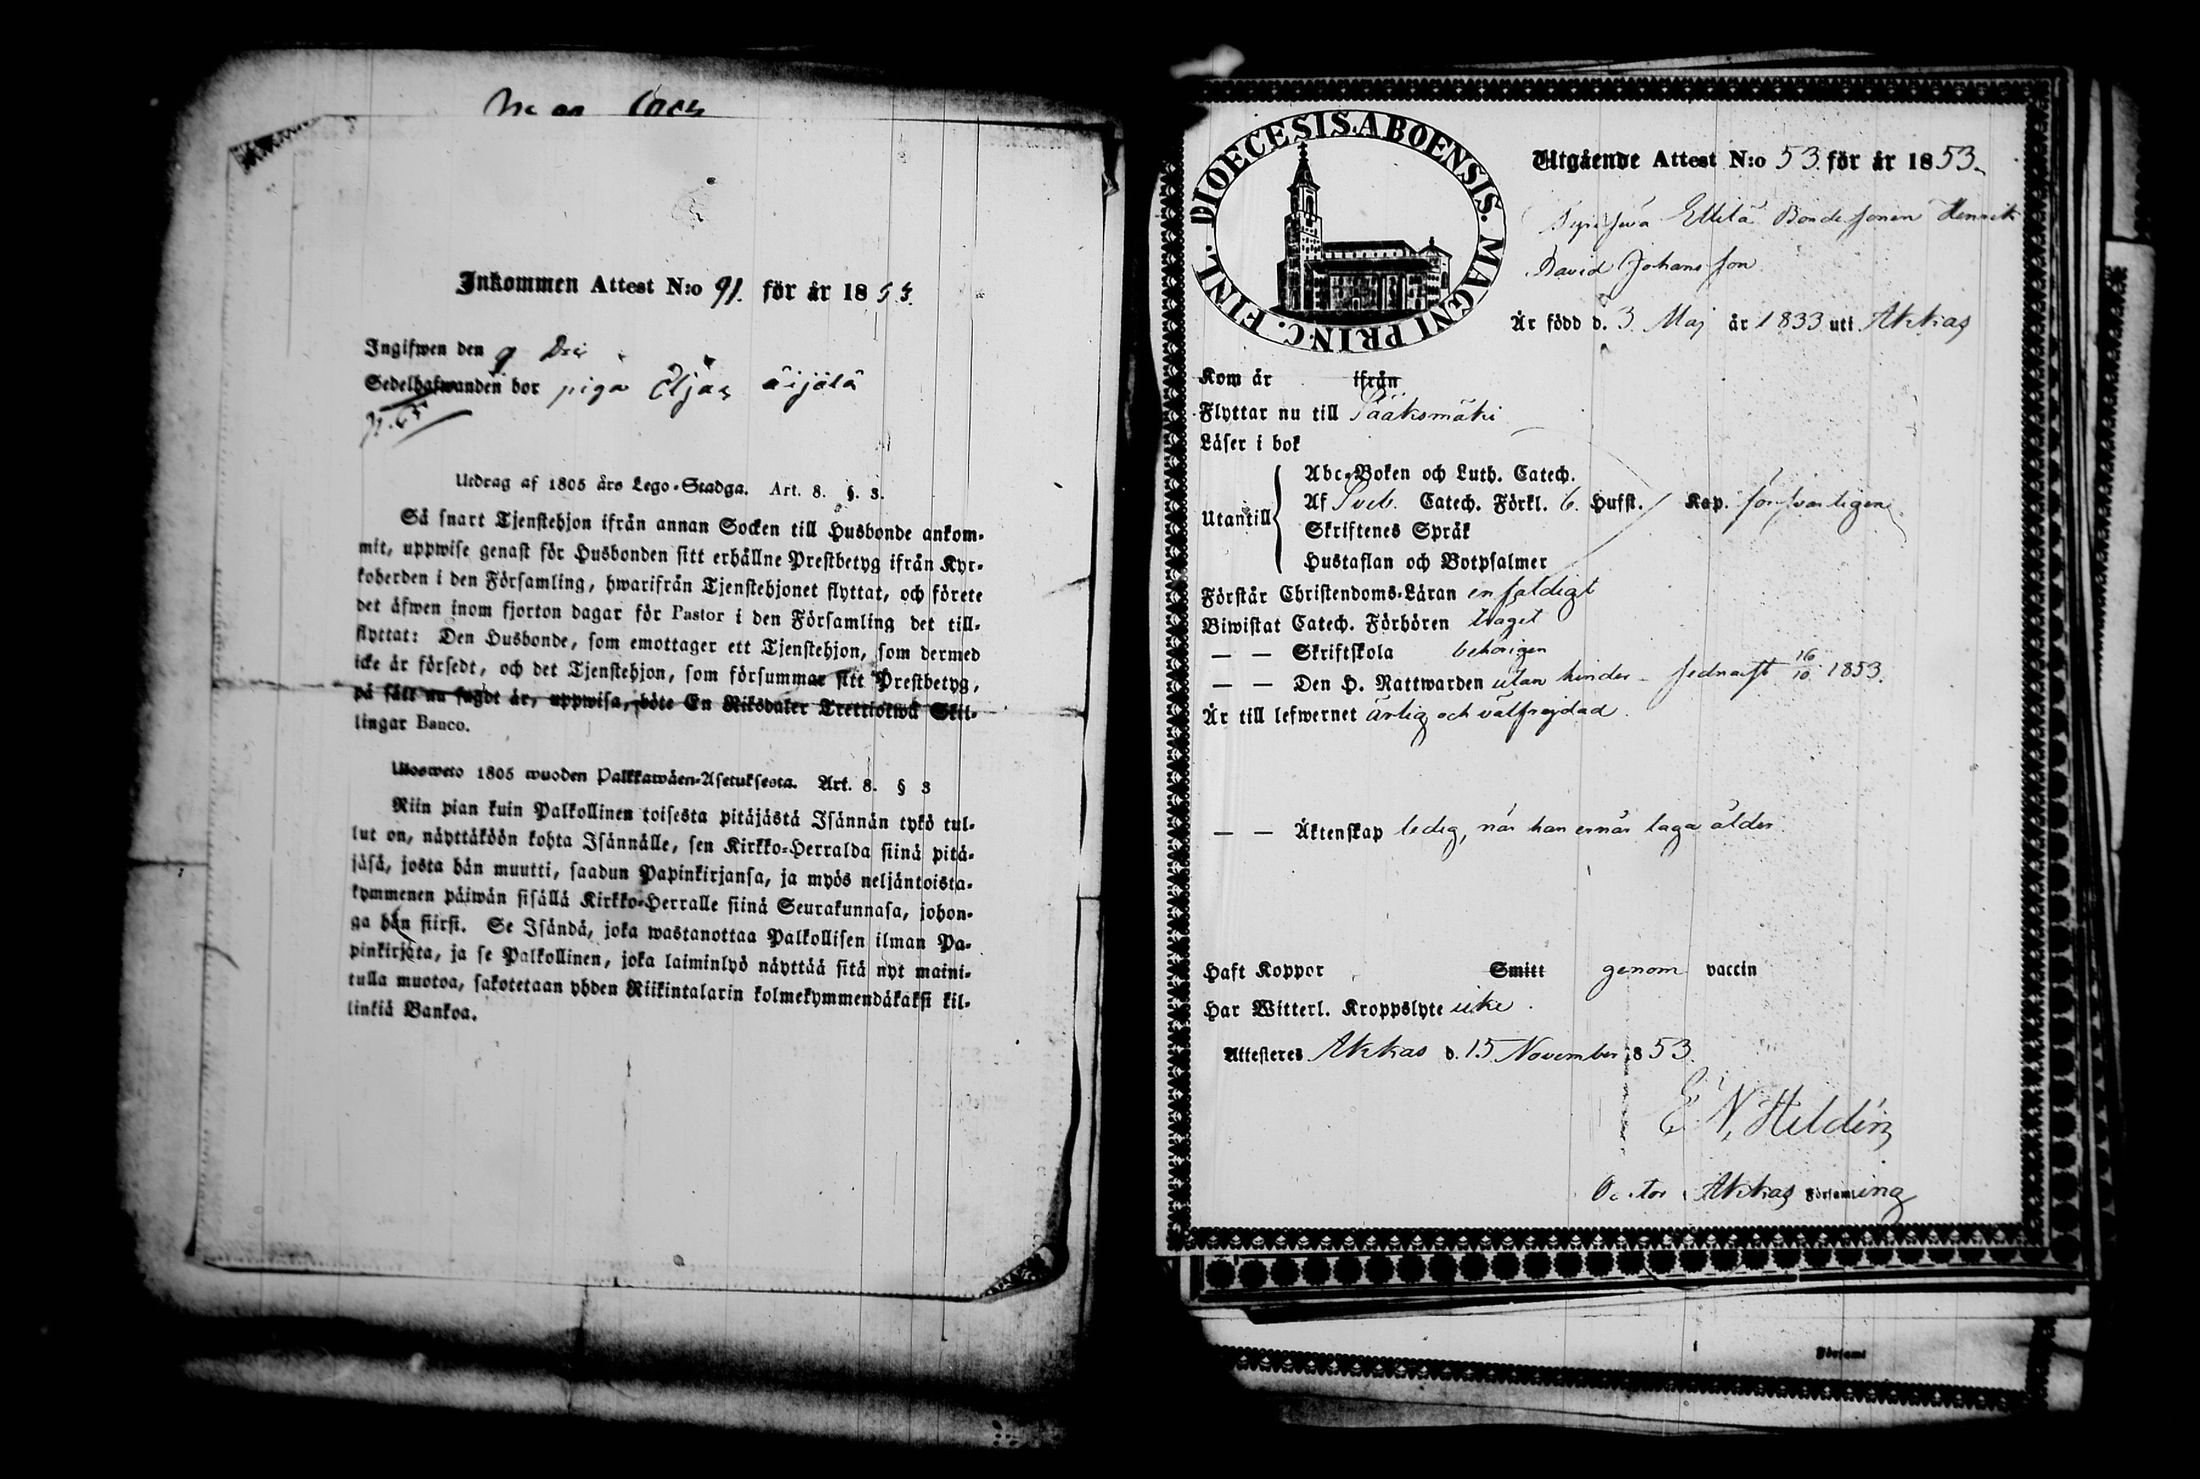 Inkommen Attest N:o 91. för år 1853.
Ingifwen den 9 Dec
Sedelhafwanden bor piga Eljas Äijälä
Utdrag af 1805 års Lego-Stadga. Art. 8. §. 3.
Så snart Tjenstehjon ifrån annan Socken till Husbonde ankom-
mit, uppwise genast för Husbonden sitt erhållne Prestbetyg ifrån Kyr-
koherden i den Församling, hwarifrån Tjenstehjonet flyttat, och förete
det äfwen inom fjorton dagar för Pastor i den Församling det till-
flyttat: Den Husbonde, som emottager ett Tjenstehjon, som dermed
icke är försedt, och det Tjenstehjon, som försummar sitt Prestbetyg,
på sätt nu sagdt är, uppwisa, böte En Riksdaler Trettiotwå Skil-
lingar Banco.
Ulosweto 1805 wuoden Palkkawäen-Asetuksesta. Art. 8. § 3
Niin pian kuin Palkollinen toisesta pitäjästä Isännän tykö tul-
lut on, näyttäköön kohta Isännälle, sen Kirkko-Herralda siinä pitä-
jäsä, josta hän muutti, saadun Papinkirjansa, ja myös neljäntoista-
kymmenen päiwän sisällä Kirkko-Herralle siinä Seurakunnasa, johon-
ga hän siirsi. Se Isändä, joka wastanottaa Palkollisen ilman Pa-
pinkirjata, ja se Palkollinen, joka laiminlyö näyttää sitä nyt maini-
tulla muotoa, sakotetaan yhden Riikintalarin kolmekymmendäkaksi kil-
linkiä Bankoa.
DIOECESIS. ABOENSIS. MAGNI PRINC. FINL.
Utgående Attest N:o 53 för år 1853.
Ellilä Bondesonen Henrik
David Johansson
Är född d. 3 Maj år 1833 uti Akkas
Kom år ifrån
Flyttar nu till Sääksmäki
Läser i bok
Utantill
Abc-Boken och Luth. Catech.
Af Sveb. Catech. Förkl. 6. Hufst. Kap. försvarligen
Skriftenes Språk
Hustaflan och Botpsalmer
Förstår Christendoms-Läran enfaldigt
Biwistat Catech. Förhören traget
— — Skriftskola behörigen
— — Den H. Nattwarden utan hinder - sednast 16/10 1853.
Är till lefwernet ärlig och välfrejdad.
— — Äktenskap ledig, när han ernår laga ålder.
Haft Koppor Smitt genom vaccin
Har Witterl. Kroppslyte icke.
Attesteres Akkas d. 15 November 1853.
E. N. Heldén
Akkas Församling
Församl